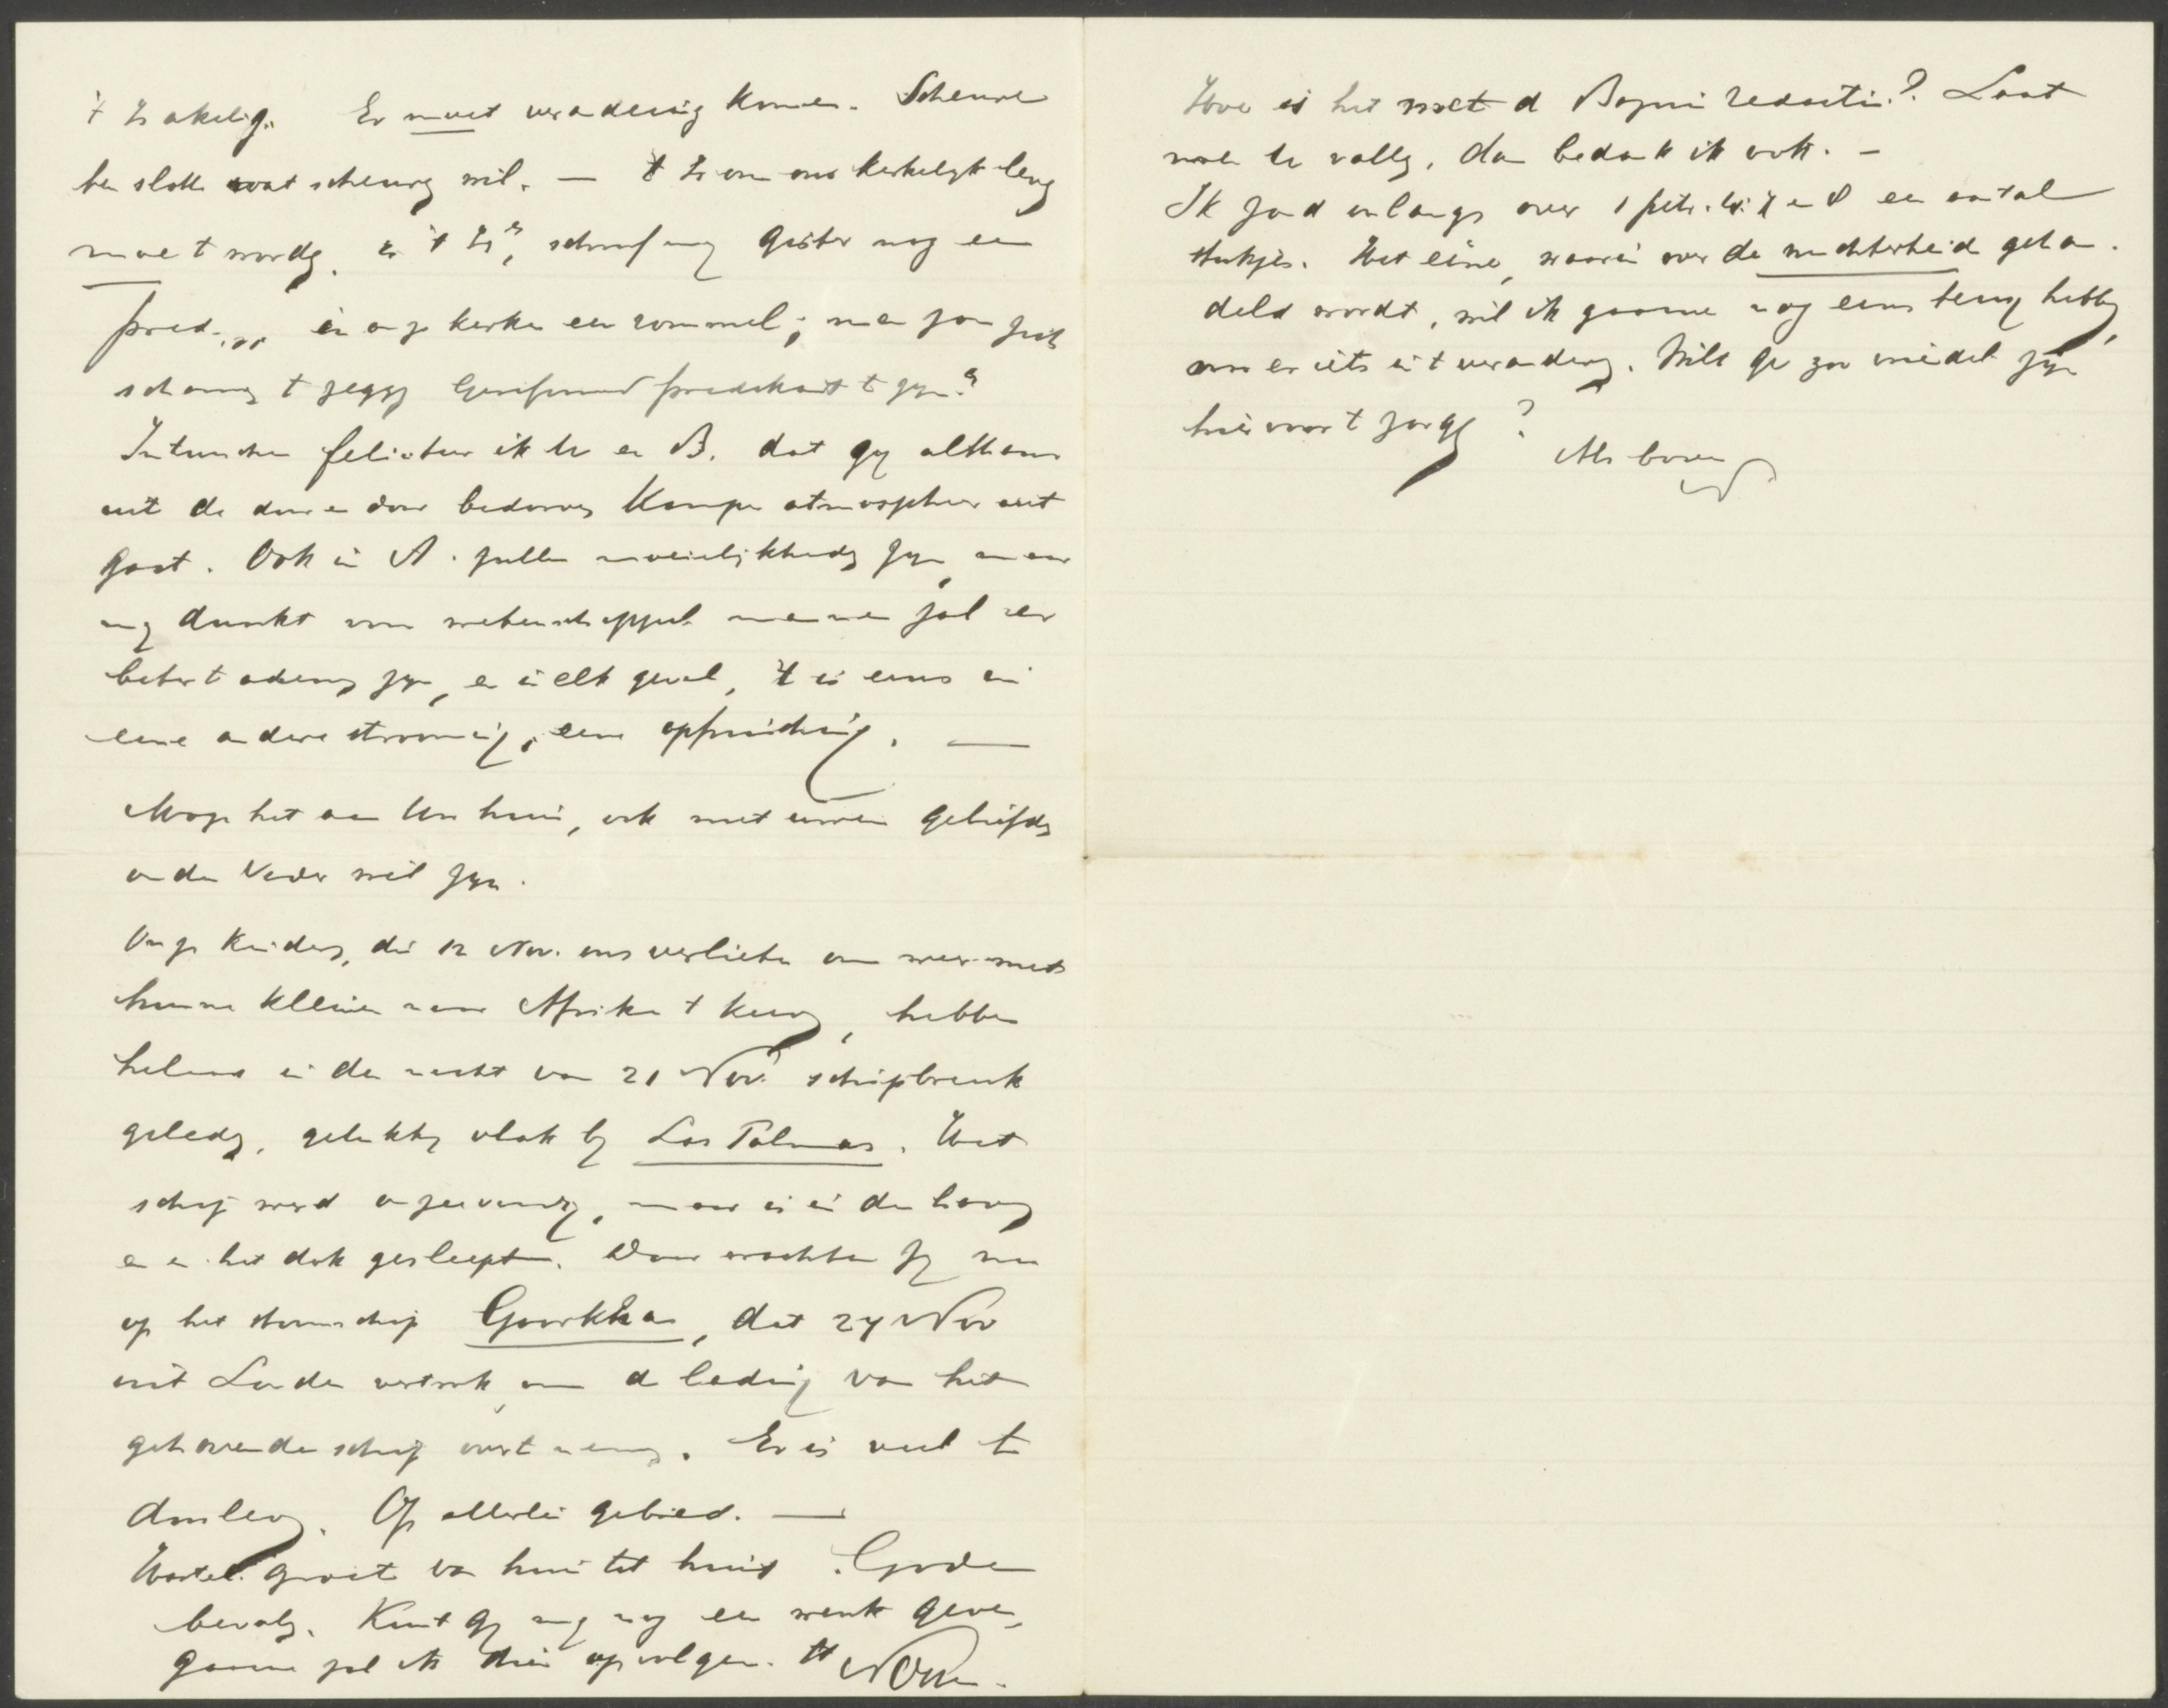 't Is akelig. Er moet verandering komen. Scheure
ten slotte wat scheuren wil. — 't Is om ons kerkelijk leven
moet worden. en 't Is", schreef mij gister nog een
pred. ,, in onze kerken een rommel; men zou zich
schamen te zeggen Gereformeerd predikant te zijn."
Intusschen feliciteer ik U en B. dat gij althans
uit de door en door bedorven Kamper atmospheer uit
gaat. Ook in A. zullen moeielijkheden zijn, maar
mij dunkt voor wetenschappel. mannen zal er
beter te ademen zijn, en in elk geval, 't is eens in
eene andere strooming, eene opfrissching. —
Moge het aan Uw huis, ook met uwen geliefden
ouden Vader wel zijn.
Onze kinders, die 12 Nov. ons verlieten om weer met
hunne kleinen naar Afrika te keeren, hebben
helaas in den nacht van 21 Nov. schipbreuk
geleden, gelukkig vlak bij Las Palmas. Het
schip werd aangevaren, maar is in de haven
en in het dok gesleept. Daar wachten zij nu
op het stoomschip Goorkha, dat 27 Nov
uit Londen vertrok, om de lading van het
gehavende schip over te nemen. Er is veel te
doorleven. Op allerlei gebied. —
Hartel. groet van huis tot huis. Gode
bevolen. Kunt gij mij nog een wenk geven,
gaarne zal ik dien opvolgen. tt
Hoe is het met de Bazuin redactie? Laat
men U vallen, dan bedank ik ook. —
Ik zond onlangs over 1 Petr. 4: 7 en 8 een aantal
stukjes. Het eene, waarin over de nuchterheid gehan-
deld wordt, wil ik gaarne nog eens terug hebben,
om er iets in te veranderen. Wilt ge zoo vriendel. zijn
hiervoor te zorgen?
Als boven
N